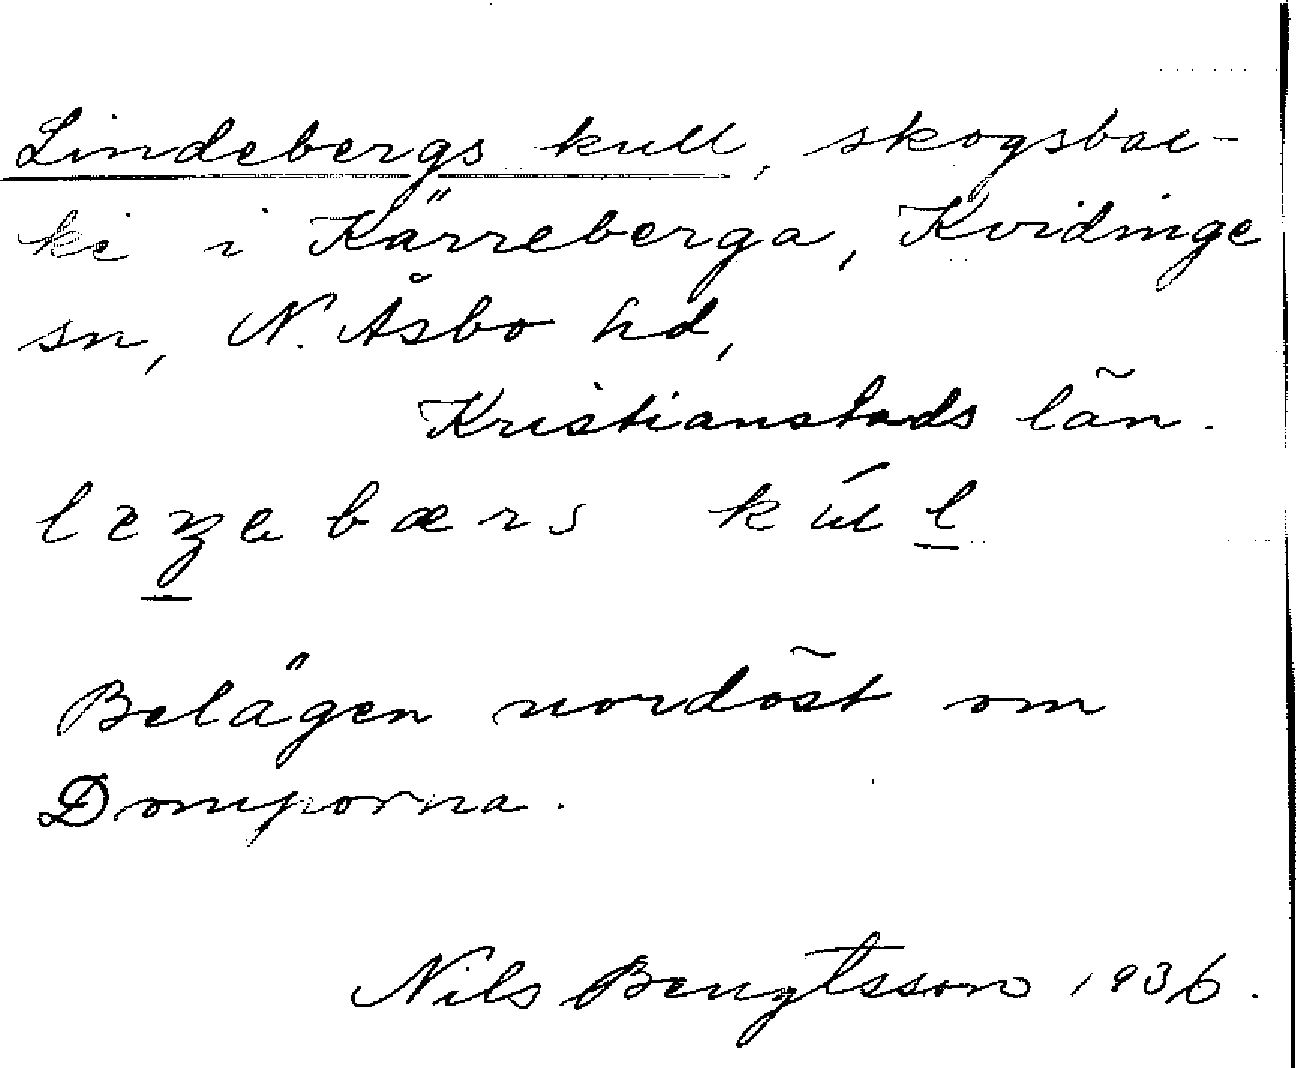 Lindebergs kull, skogsbac-
ke i Kärreberga, Kvidinge
sn, N. Åsbo hd,
Kristianstads län.
kúl
Belägen nordöst om
Domporna.
Nils Bengtsson 1936.